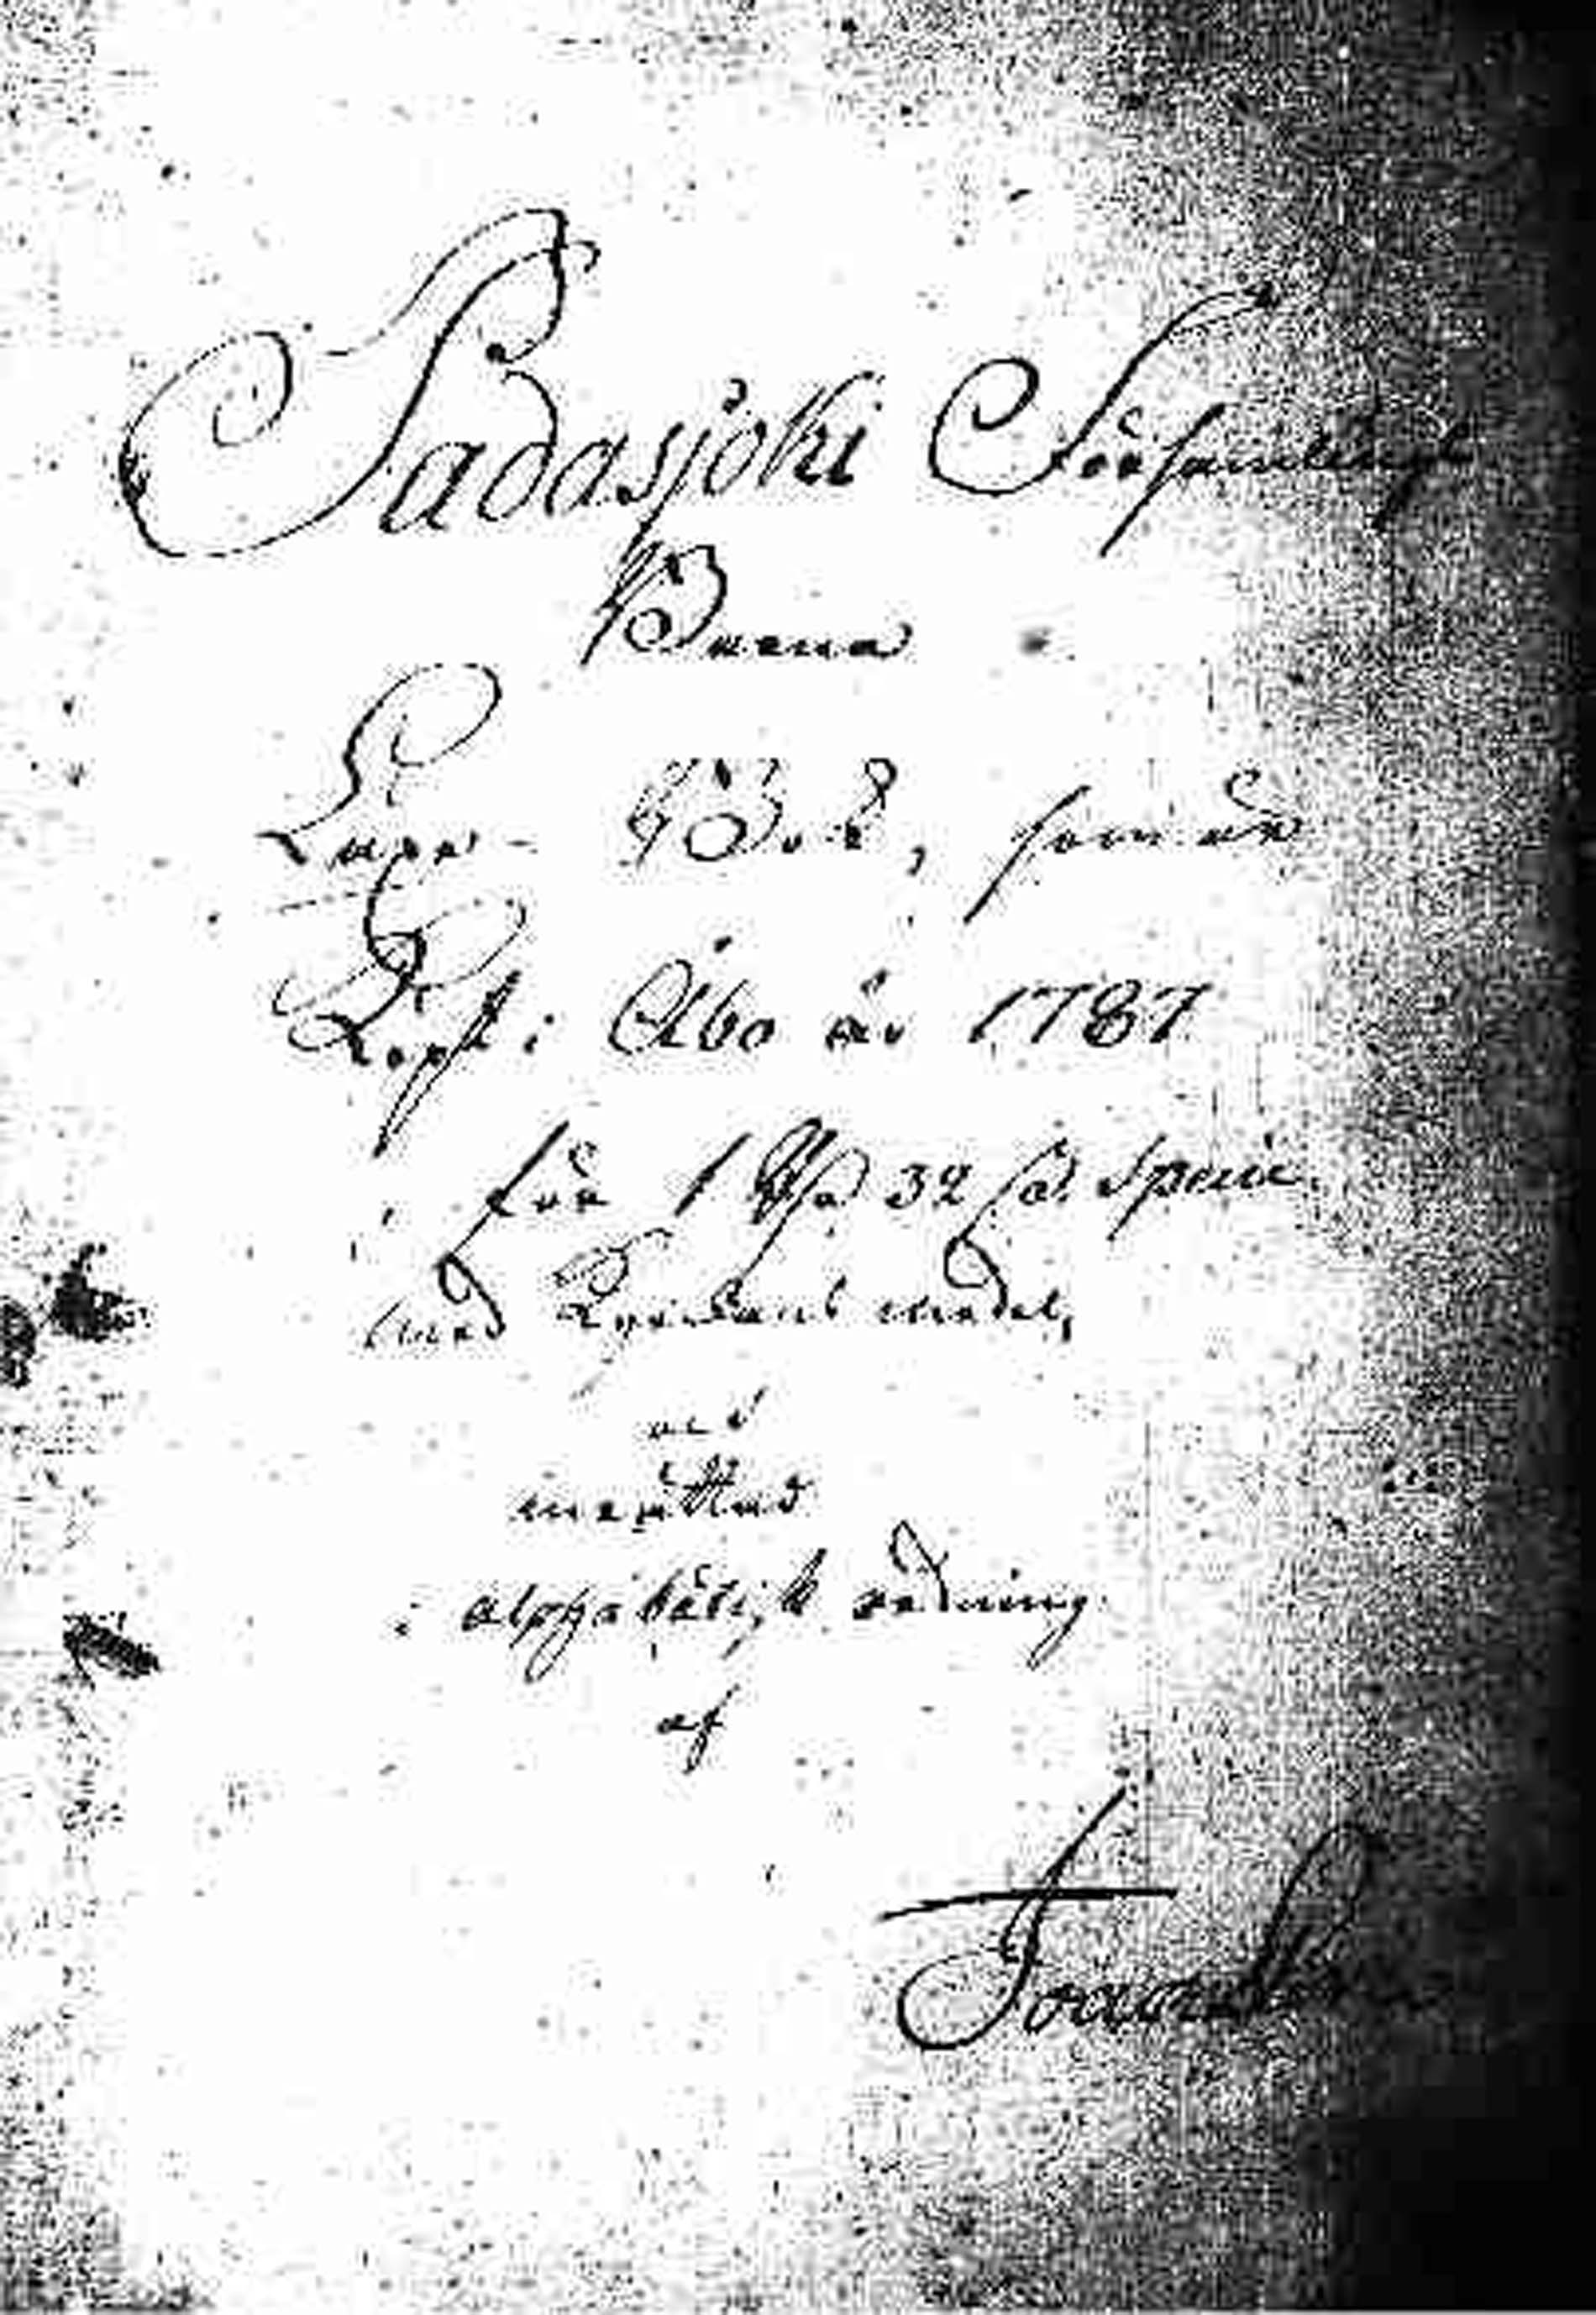 Padasjoki Församlings
Barna
Läro-Bok, som är
Köpt i Åbo år 1787
för 1 Rd 32 s. Specie
med Kyrckans medel,
och
inrättad
i alphabetisk ordning
af